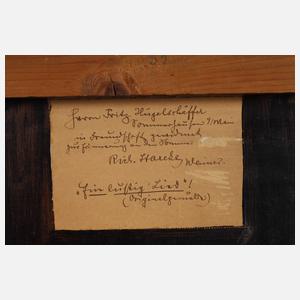 Herrn Fritz Hügelschäffer
Sommerhausen a/Main
in Freundschaft gewidmet
zur Erinnerung an den
Rich. Starcke, Weimar.
"Ein lustig Lied"!
(Originalgemälde)